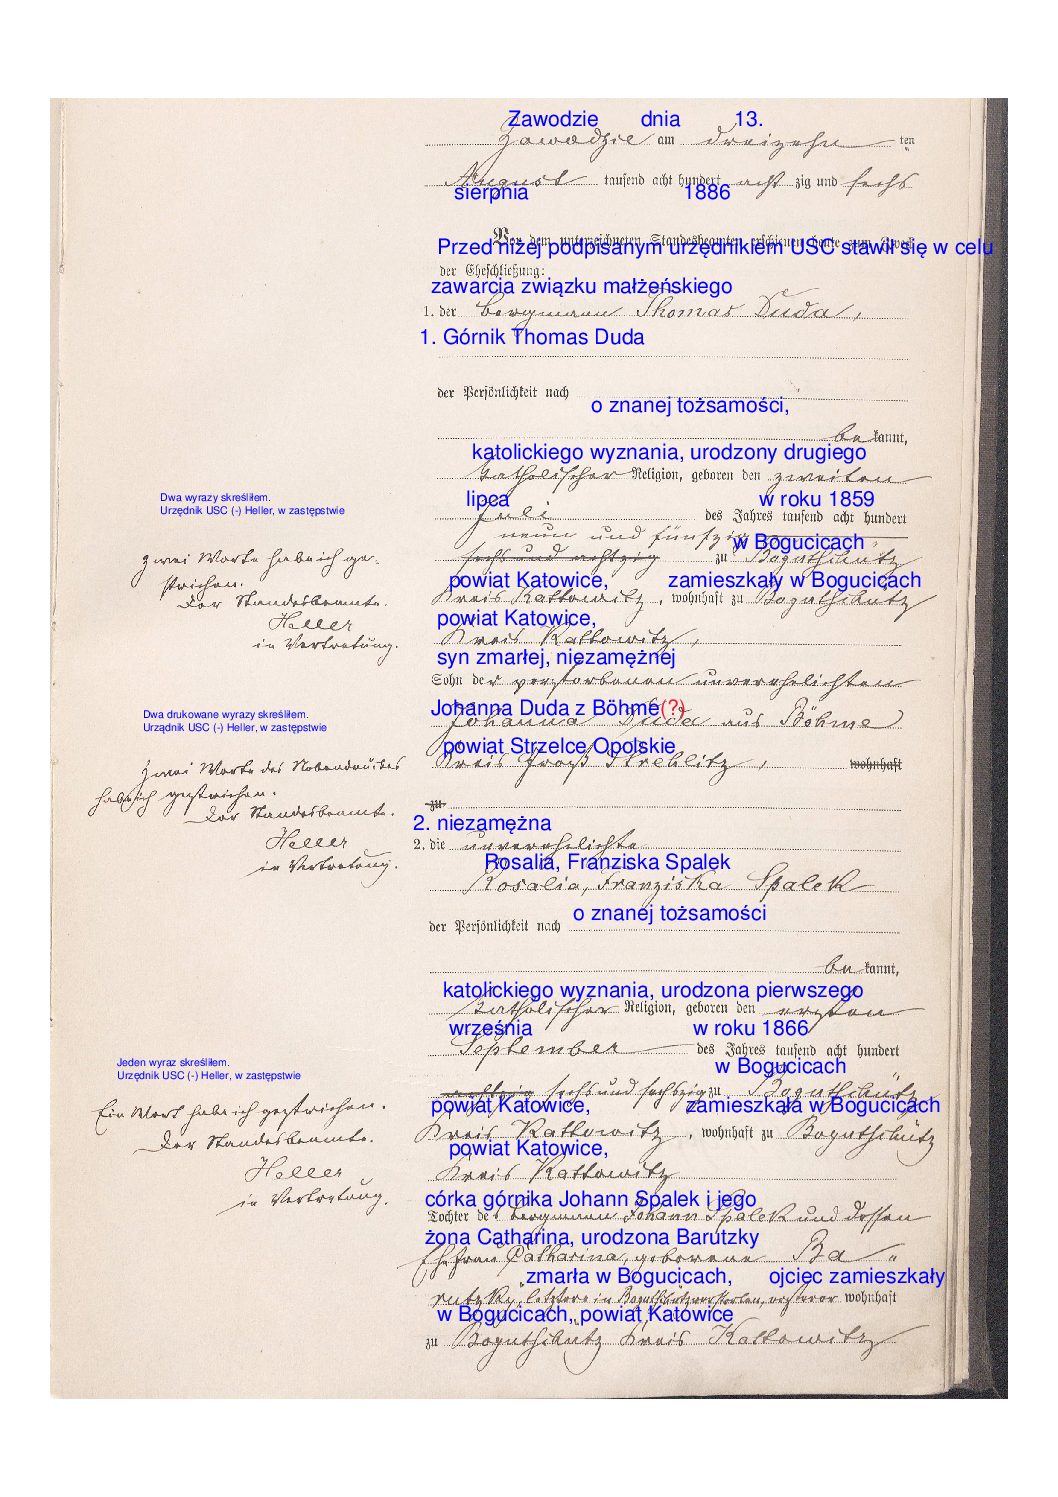 Zawodzie dnia 13.
Zawodzie am dreizehn ten
August tausend acht hundert acht zig und sechs
sierpnia 1886
Vor dem unterzeichneten Standesbeamten erschienen heute zum Zweck
Przed niżej podpisanym urzędnikiem USC stawił się w celu
der Eheschließung:
zawarcia związku małżeńskiego
1. der Bergmann Thomas Duda,
1. Górnik Thomas Duda
der Persönlichkeit nach
o znanej tożsamości,
be kannt,
katolickiego wyznania, urodzony drugiego
katholischer Religion, geboren den zweiten
lipca w roku 1859
Juli des Jahres tausend acht hundert
neun und fünfzig
w Bogucicach
sechs und achtzig zu Bogutschütz
powiat Katowice, zamieszkały w Bogucicach
Kreis Kattowitz, wohnhaft zu Bogutschütz
powiat Katowice,
Kreis Kattowitz,
syn zmarłej, niezamężnej
Sohn der verstorbenen unverehelichten
Johanna Duda z Böhme(?)
Johanna Duda aus Böhme
powiat Strzelce Opolskie
Kreis Groß Strehlitz, wohnhaft
zu
2. niezamężna
2. die unverehelichte
Rosalia, Franziska Spalek
Rosalia, Franziska Spalek
o znanej tożsamości
der Persönlichkeit nach
be kannt,
katolickiego wyznania, urodzona pierwszego
katholischer Religion, geboren den ersten
września w roku 1866
September des Jahres tausend acht hundert
w Bogucicach
achtzig sechs und sechszig zu Bogutschütz
powiat Katowice, zamieszkała w Bogucicach
Kreis Kattowitz, wohnhaft zu Bogutschütz
powiat Katowice,
Kreis Kattowitz
córka górnika Johann Spalek i jego
Tochter des Bergmann Johann Spalek und dessen
żona Catharina, urodzona Barutzky
Ehefrau Catharina, geborene Ba
zmarła w Bogucicach, ojciec zamieszkały
rutzky, letztere in Bogutschütz verstorben, ersterer wohnhaft
w Bogucicach, powiat Katowice
zu Bogutschütz Kreis Kattowitz
Dwa wyrazy skreśliłem.
Urzędnik USC (-) Heller, w zastępstwie
Zwei Worte habe ich ge-
strichen.
Der Standesbeamte.
Heller
in Vertretung.
Dwa drukowane wyrazy skreśliłem.
Urządnik USC (-) Heller, w zastępstwie
Zwei Worte des Nebendruckes
habe ich gestrichen.
Der Standesbeamte.
Heller
in Vertretung.
Jeden wyraz skreśliłem.
Urzędnik USC (-) Heller, w zastępstwie
Ein Wort habe ich gestrichen.
Der Standesbeamte.
Heller
in Vertretung.